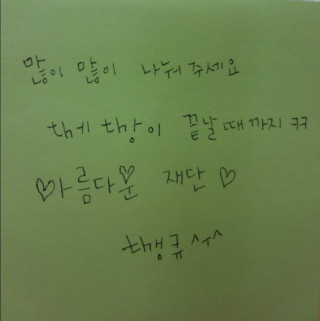 많이 많이 나눠 주세요
한게 한상이 끝날 때 까지 ㅋㅋ
♡아름다운♡ 재단 ♡
땡큐 ^ㅜ^